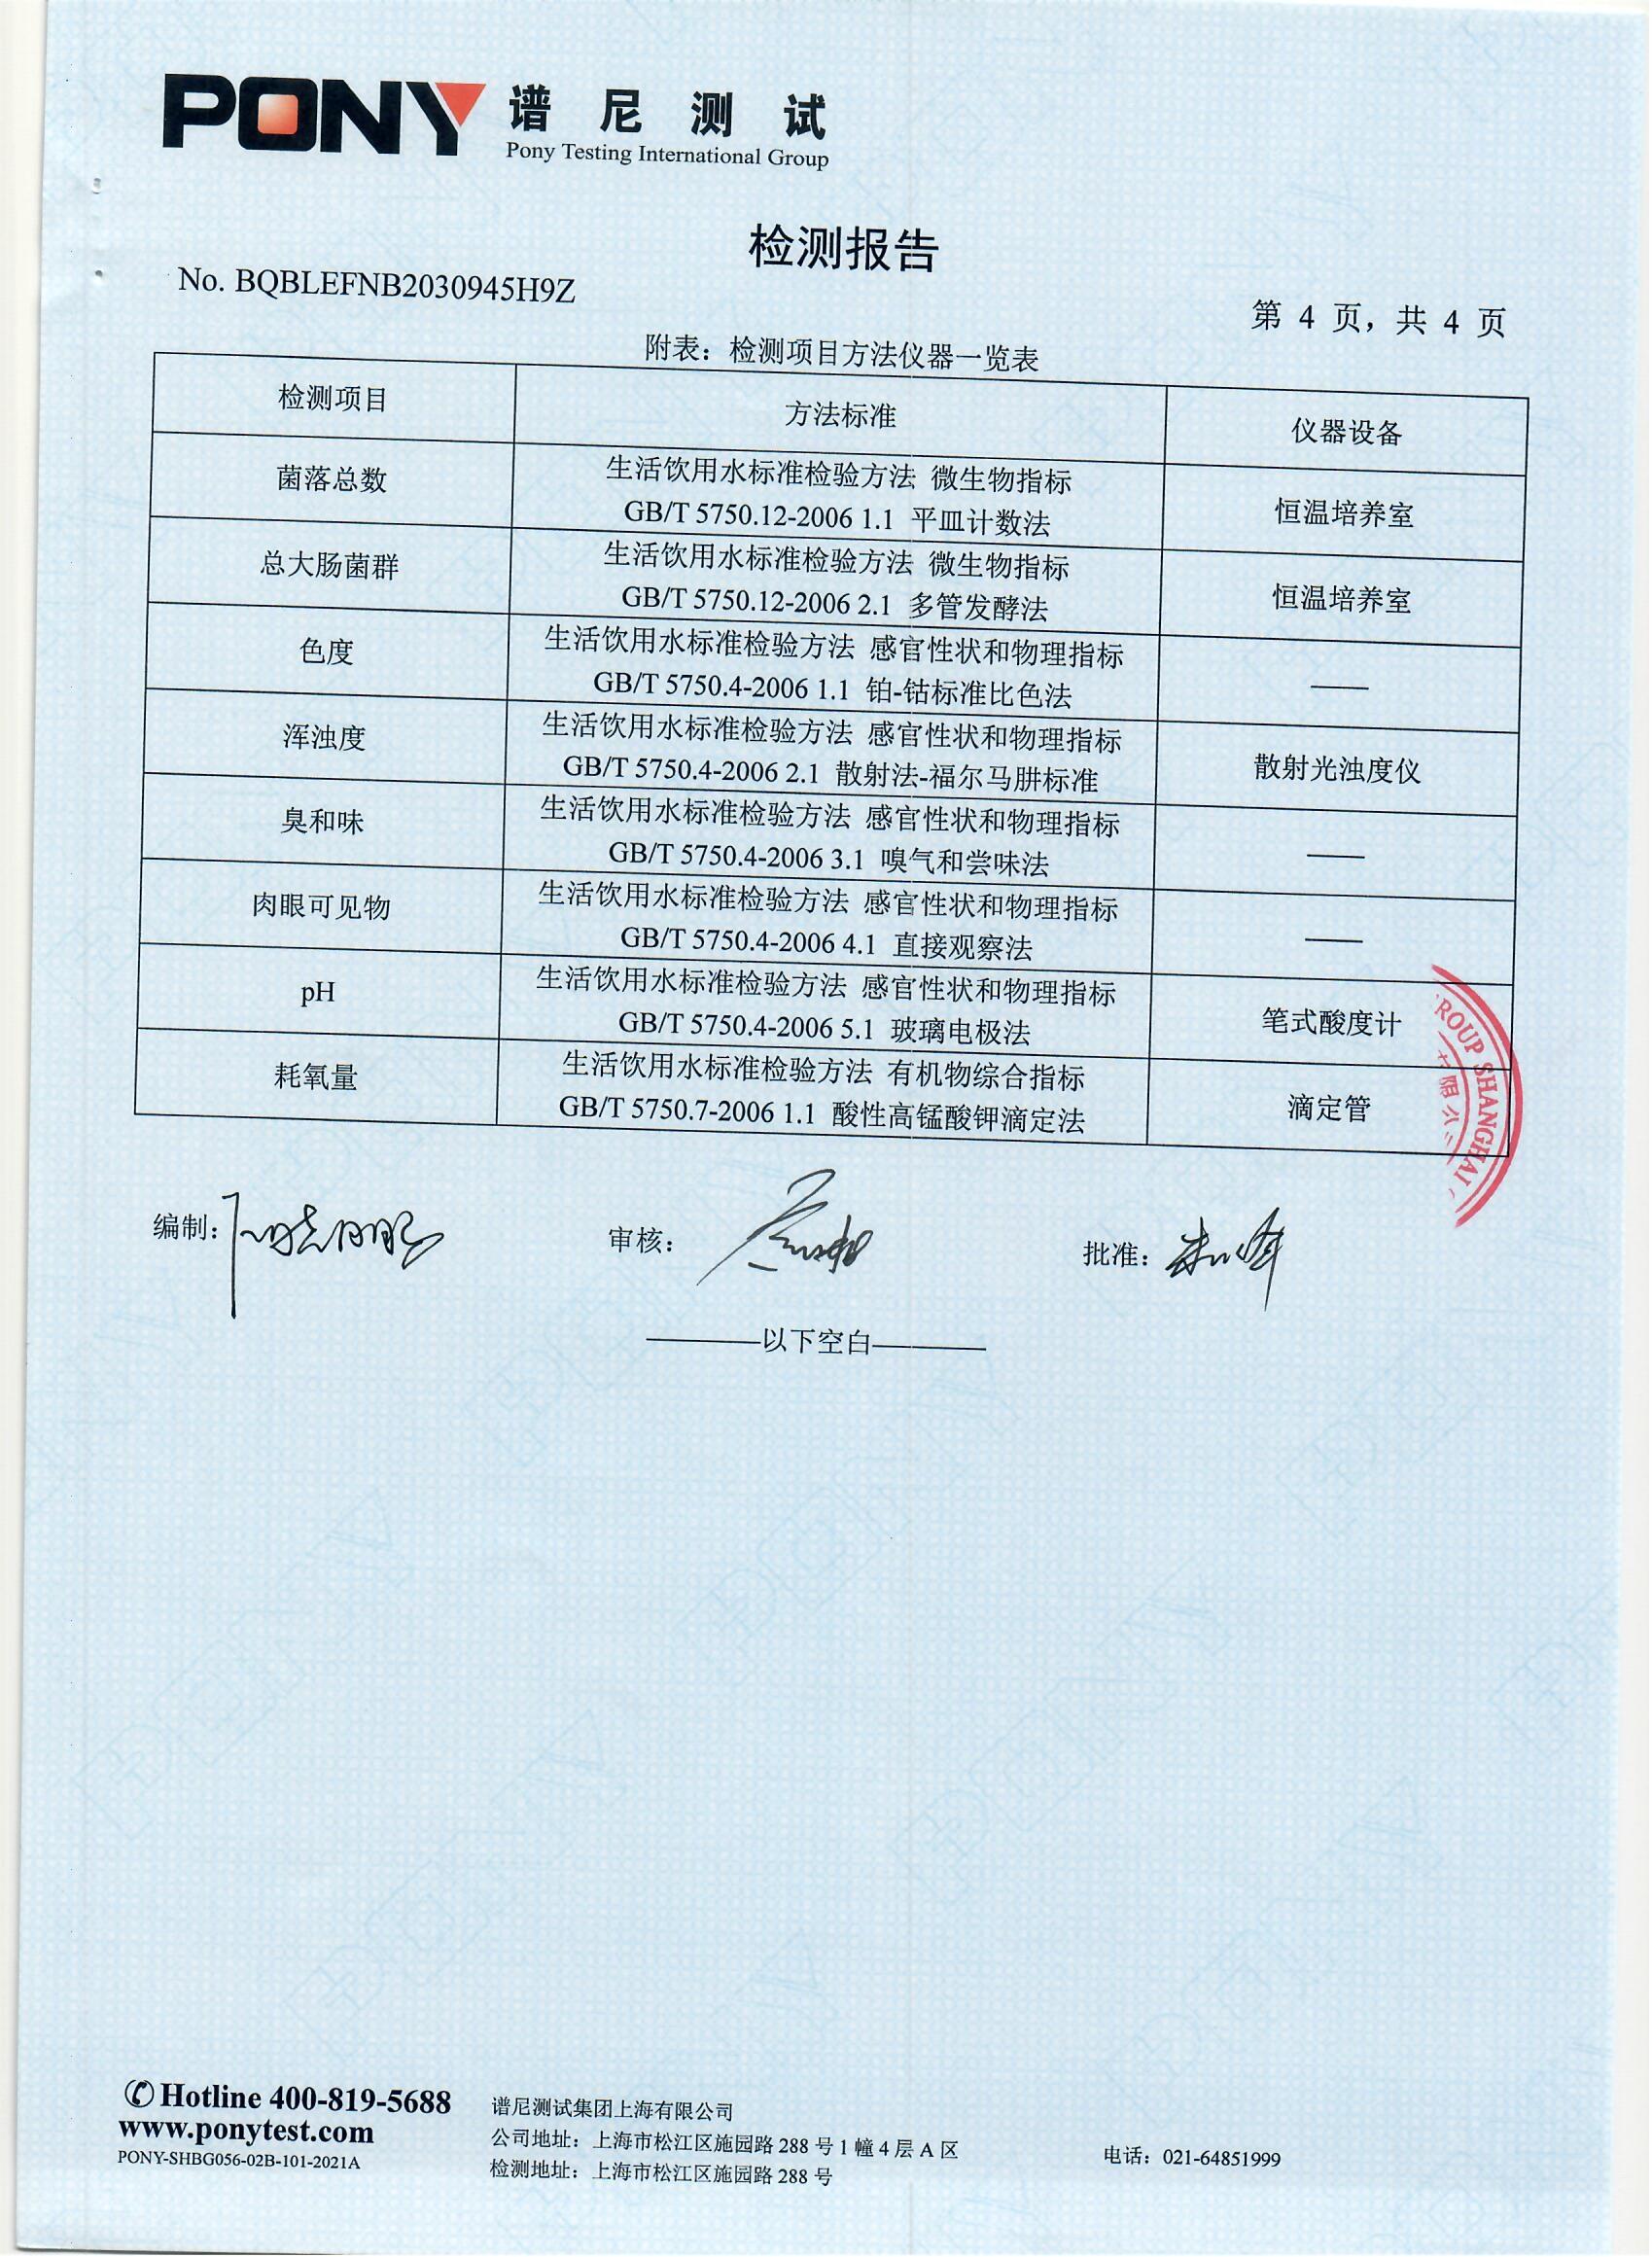 PONY 谱尼测试
Pony Testing International Group
检测报告
No. BQBLEFNB2030945H9Z
第 4 页，共 4 页
附表：检测项目方法仪器一览表
检测项目 方法标准 仪器设备
菌落总数 生活饮用水标准检验方法 微生物指标
GB/T 5750.12-2006 1.1 平皿计数法 恒温培养室
总大肠菌群 生活饮用水标准检验方法 微生物指标
GB/T 5750.12-2006 2.1 多管发酵法 恒温培养室
色度 生活饮用水标准检验方法 感官性状和物理指标
GB/T 5750.4-2006 1.1 铂-钴标准比色法 ——
浑浊度 生活饮用水标准检验方法 感官性状和物理指标
GB/T 5750.4-2006 2.1 散射法-福尔马肼标准 散射光浊度仪
臭和味 生活饮用水标准检验方法 感官性状和物理指标
GB/T 5750.4-2006 3.1 嗅气和尝味法 ——
肉眼可见物 生活饮用水标准检验方法 感官性状和物理指标
GB/T 5750.4-2006 4.1 直接观察法 ——
pH 生活饮用水标准检验方法 感官性状和物理指标
GB/T 5750.4-2006 5.1 玻璃电极法 笔式酸度计
耗氧量 生活饮用水标准检验方法 有机物综合指标
GB/T 5750.7-2006 1.1 酸性高锰酸钾滴定法 滴定管
ROUP SHANGHAI
限公
编制： 审核： 批准：
————以下空白————
Hotline 400-819-5688
www.ponytest.com
PONY-SHBG056-02B-101-2021A
谱尼测试集团上海有限公司
公司地址：上海市松江区施园路 288 号 1 幢 4 层 A 区
检测地址：上海市松江区施园路 288 号
电话：021-64851999